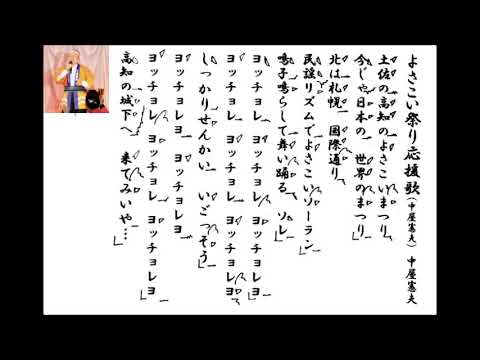 よさこい祭り応援歌(中屋憲夫) 中屋憲夫
土佐の高知のよさこいまつり
今じゃ日本の 世界のまつり
北は札幌 国際通り
民謡リズムでよさこいソーラン
鳴子鳴らして舞い踊る ソレ
ヨッチョレヨ ヨッチョレ ヨッチョレヨ
ヨッチョレ ヨッチョレ ヨッチョレヨ
しっかりせんかい いごっそう
ヨッチョレヨ ヨッチョレヨ
ヨッチョレ ヨッチョレ ヨッチョレヨ
高知の城下へ 来てみいや…